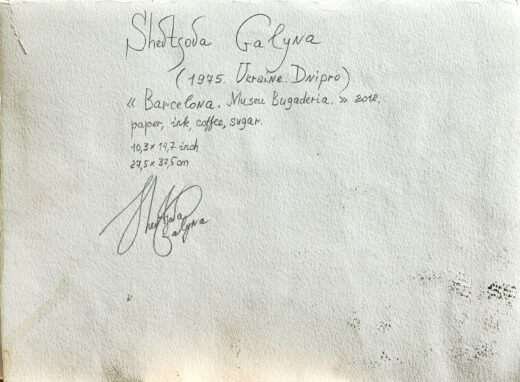 Shevtsova Galyna
(1975. Ukraine. Dnipro)
« Barcelona. Museu Bugaderia. » 2018.
paper, ink, coffee, sugar.
10,3 x 14,7 inch
27,5 x 37,5 cm
Shevtsova
Galyna